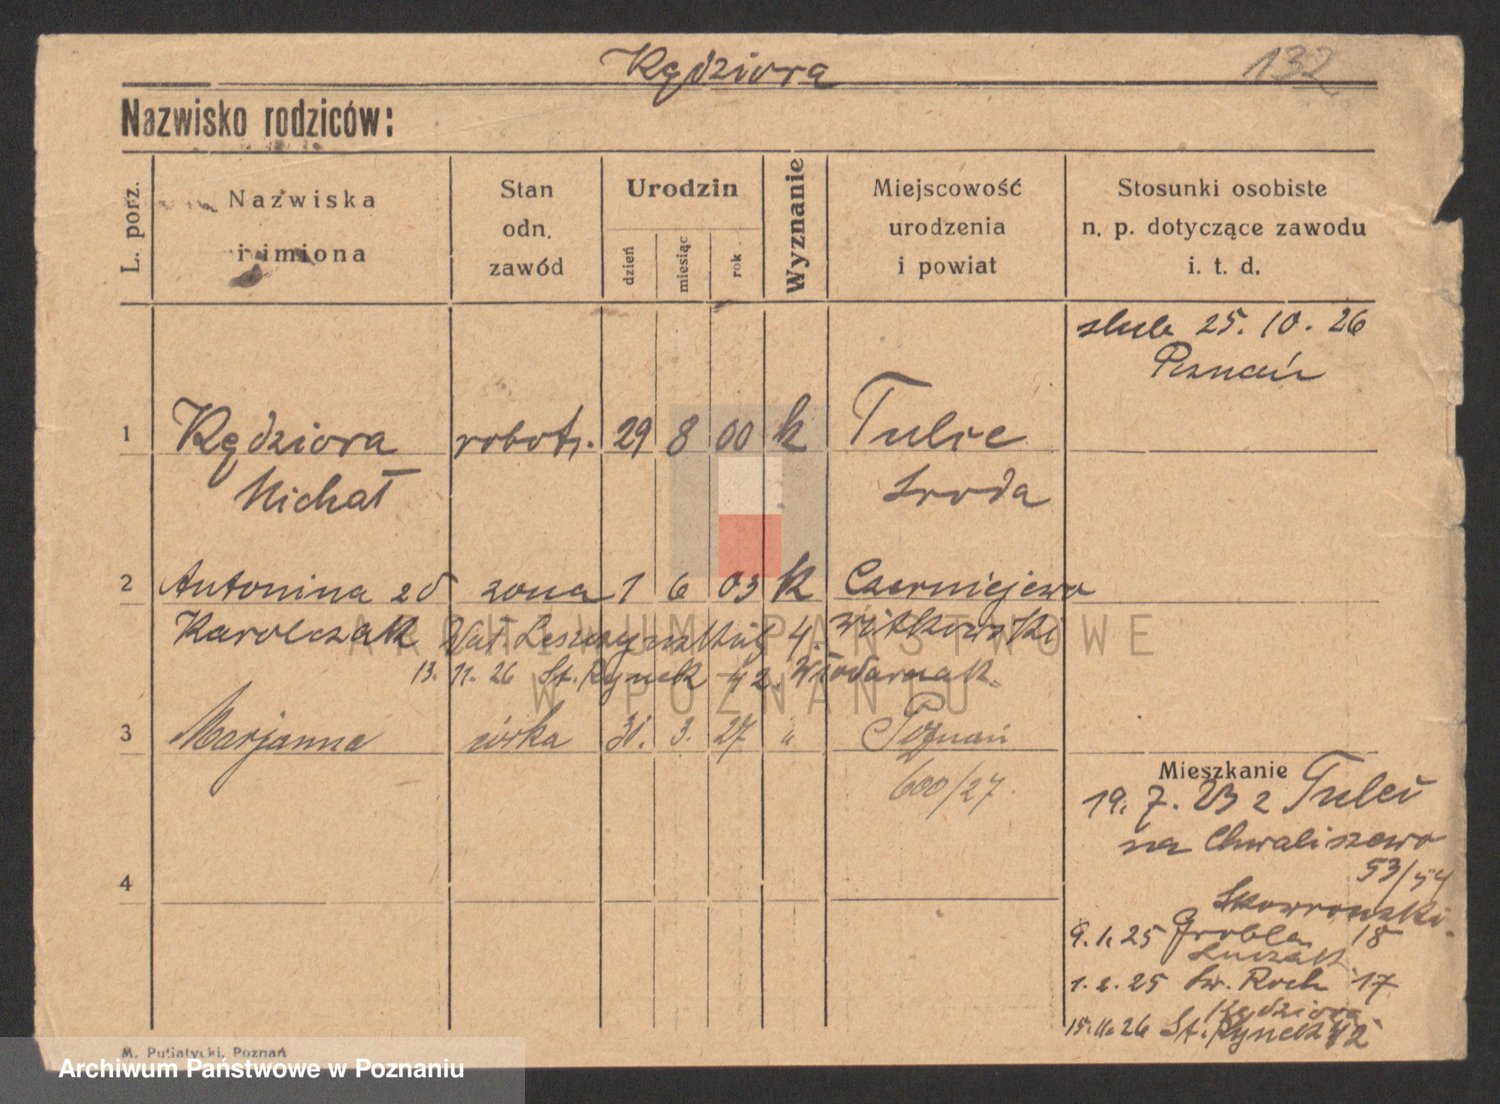 Kędziora
132
Nazwisko rodziców:
L. porz.
Nazwiska
i imiona
Stan
odn.
zawód
Urodzin
dzień
miesiąc
rok
Wyznanie
Miejscowość
urodzenia
i powiat
Stosunki osobiste
n. p. dotyczące zawodu
i. t. d.
slub 25. 10. 26
Poznań
1 Kędziora robotn. 29 8 00 k Tulce
Michał Sroda
2 Antonina zd żona 1 6 03 k Czerniejewo
Karolczak Wał. Leszczyńskich 4. Witkowski
13. 11. 26 St. Rynek 42. Włodarczak
3 Marjanna córka 31. 3. 27 " Poznań
600/27.
Mieszkanie
19. 7. 23 z Tulec
na Chwaliszewo
53/54
4
Skowronski.
9. 1. 25 Grobla 18
1. 2. 25 Św. Roch 17
Kędziora
15. 11. 26 St. Rynek 42
M. Putiatycki, Poznań
ARCHIWUM PAŃSTWOWE
W POZNANIU
Archiwum Państwowe w Poznaniu